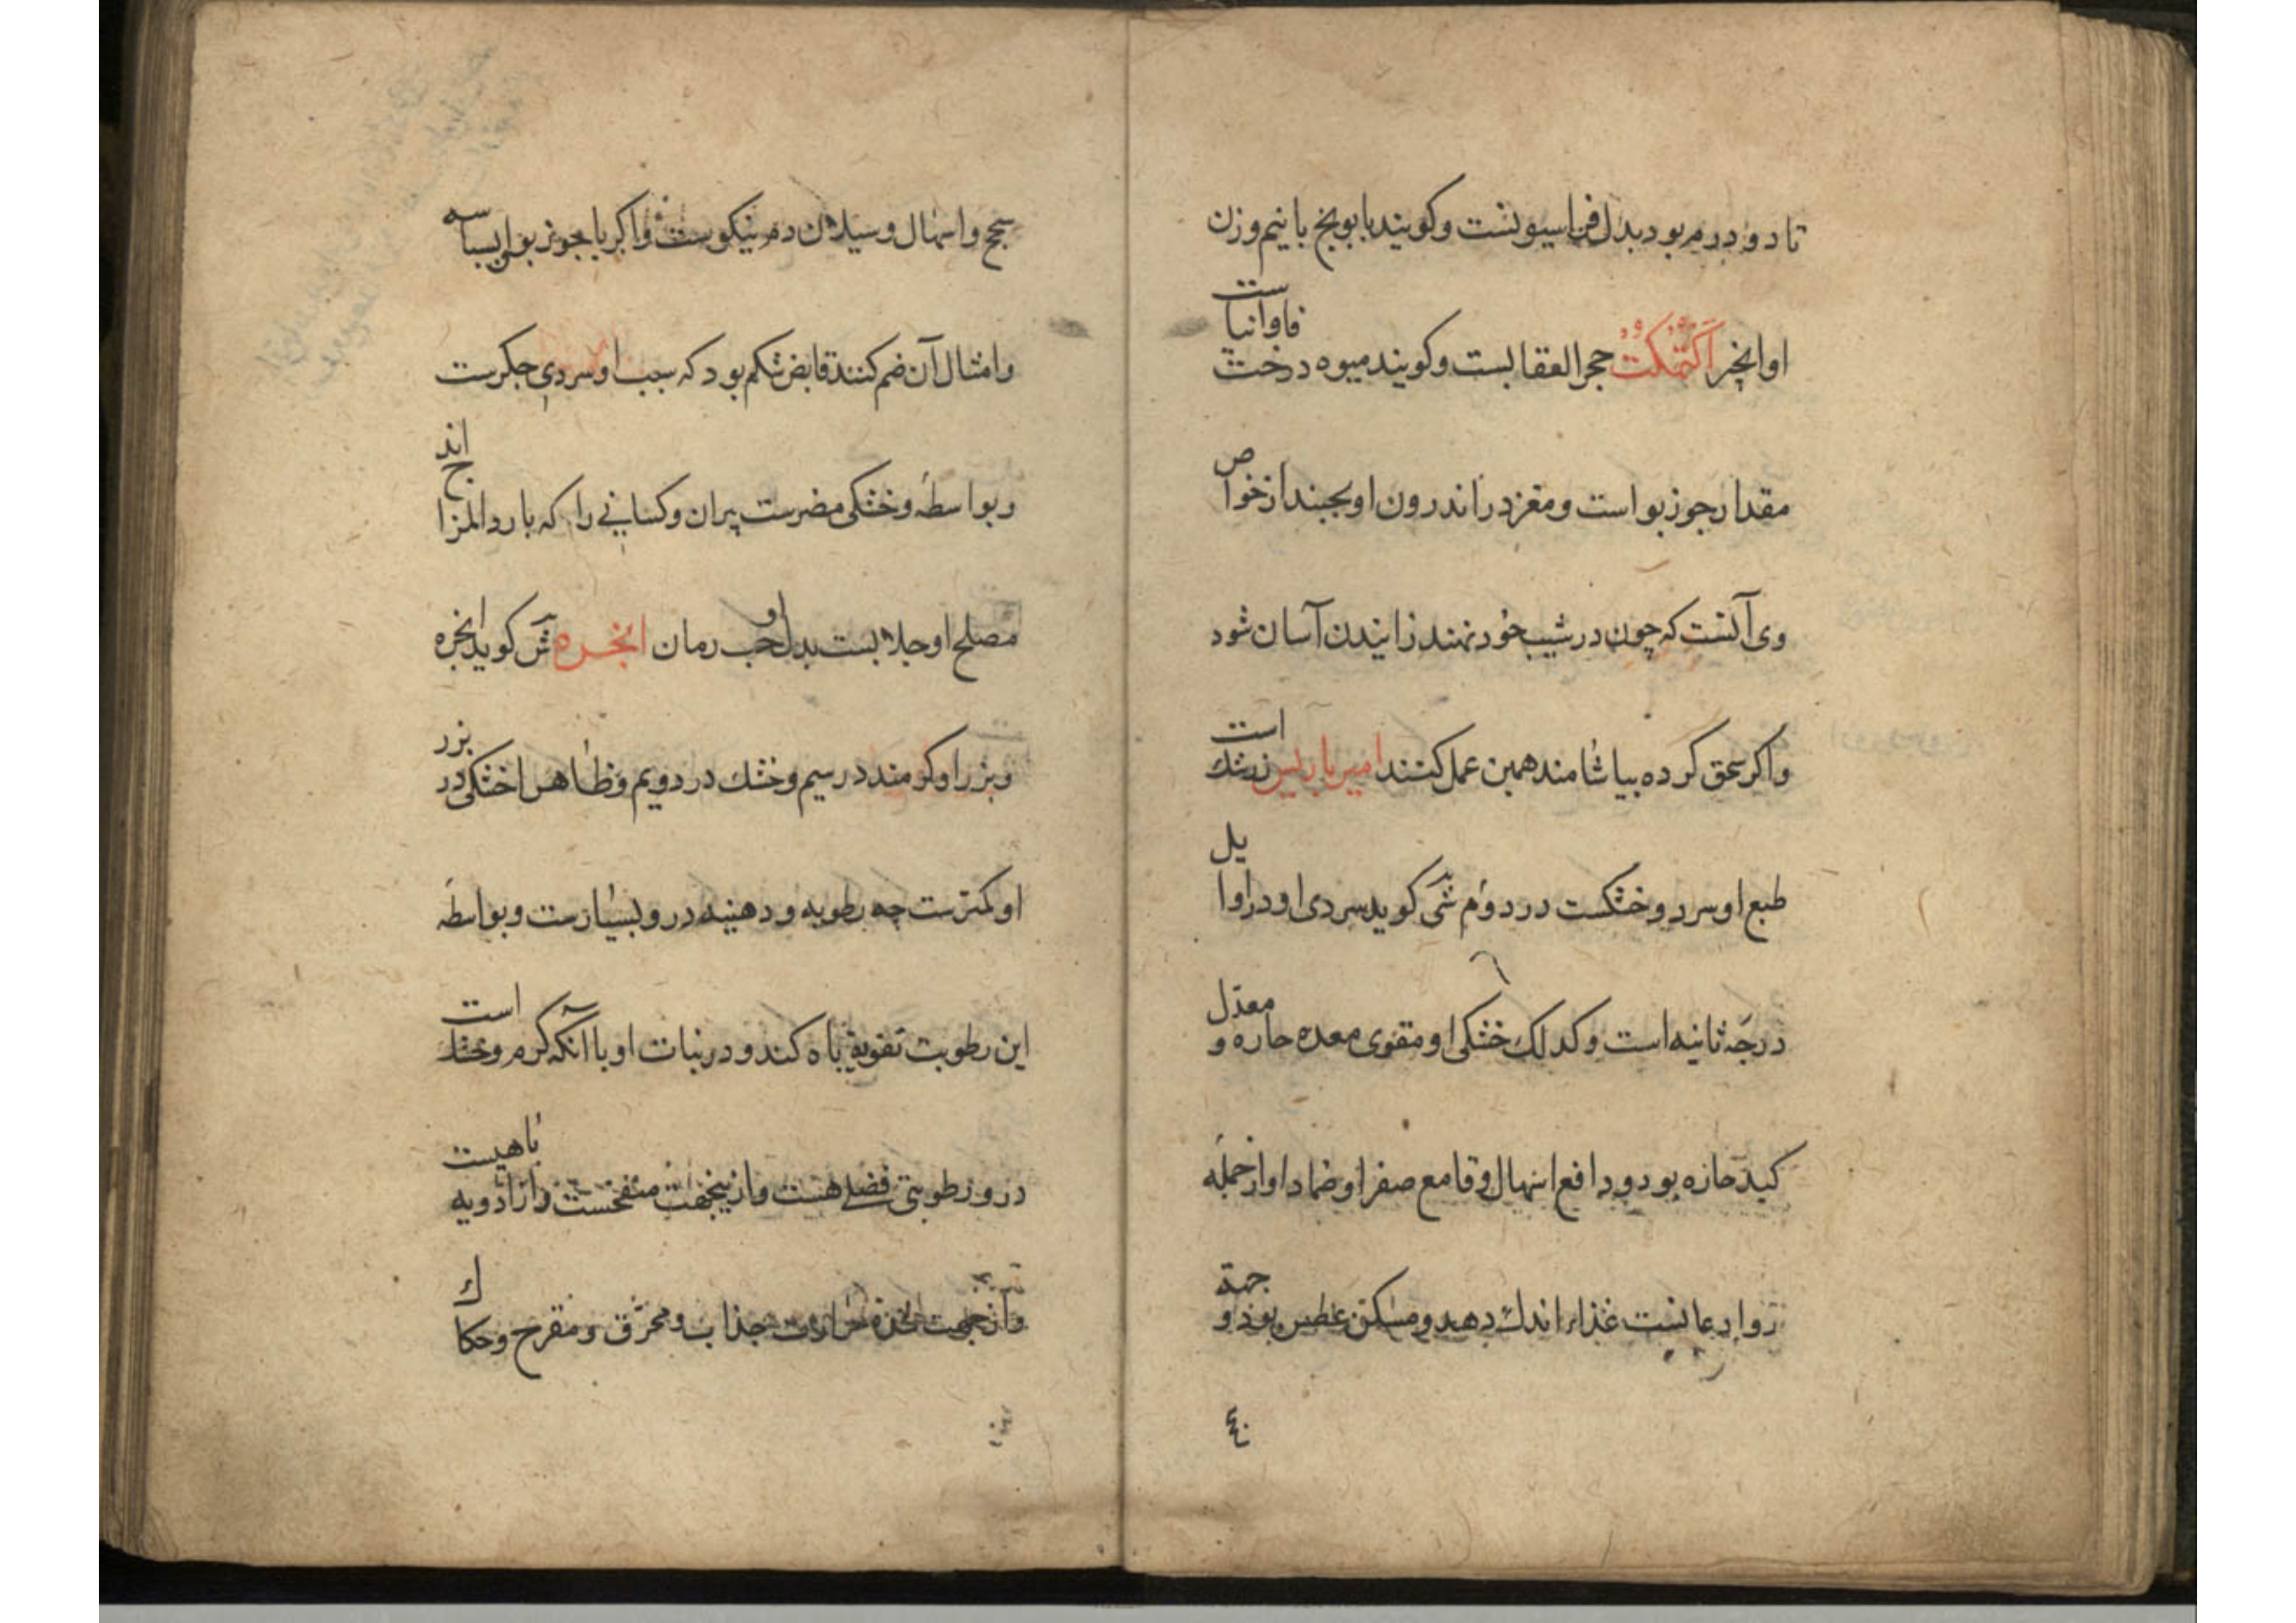 تا دو درم بود بدل فراسیونست و کویند بابونج با نیم وزن
او انجیر اکتمکت حجر العقابست و کویند میوه درخت فاوانیاست
مقدار جوز بواست و مغزد راندرون او بجنبد از خواص
وی آنست که چون در شیب خود نهند زایندن آسان شود
واکر سحق کرده بیاشامند همین عمل کنند امیر باریس زرشك است
طبع او سرد و خشکست در دوم شی کوید سردی او در اوایل
درجه ثانیه است و کدلك خشکی او مقوی معده حاره و معدل
کبد حاره بود و دافع اسهال و قامع صفرا و ضماد او از جمله
روادعانست غذاء اندك دهد و مسکن عطس بود و جهة
سحج و اسهال و سیلان دم نیکوست و اکر با جوز بوا بسباسه
و امثال آن ضم کنند قابض شکم بود که سبب او سردی جکرست
و بواسطه و خشکی مضرست پیران و کسانی را که بارد المزاج اند
مصلح او جلابست بدل او حب رمان انجره ش کوید انجره
و بزر او کرمند در سیم و خشك در دویم و ظاهرا خشکی در بزر
او کمترست چه رطوبه و دهنیه در و بسیارست و بواسطه
این رطوبت تقویة باه کند و در نبات او با آنکه کرم و خشك است
در و رطوبتی فضلے هست و از ینجهت منفخست و از ادویه باهیست
و از جهت حدة حرارت جذاب و محرق و مقرح و حکاك